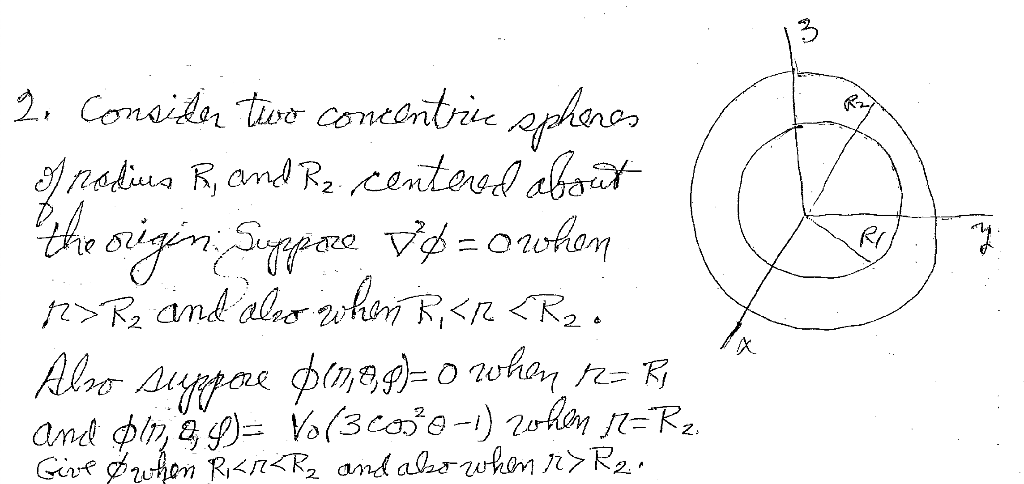 2. Consider two concentric spheres
of radius R₁ and R₂ centered about
the origin. Suppose ∇²ϕ = 0 when
r > R₂ and also when R₁ < r < R₂.
Also suppose ϕ(r,θ,φ) = 0 when r = R₁
and ϕ(r,θ,φ) = V₀(3cos²θ-1) when r = R₂.
Give ϕ when R₁<r<R₂ and also when r > R₂.
z
R₂
R₁
y
x